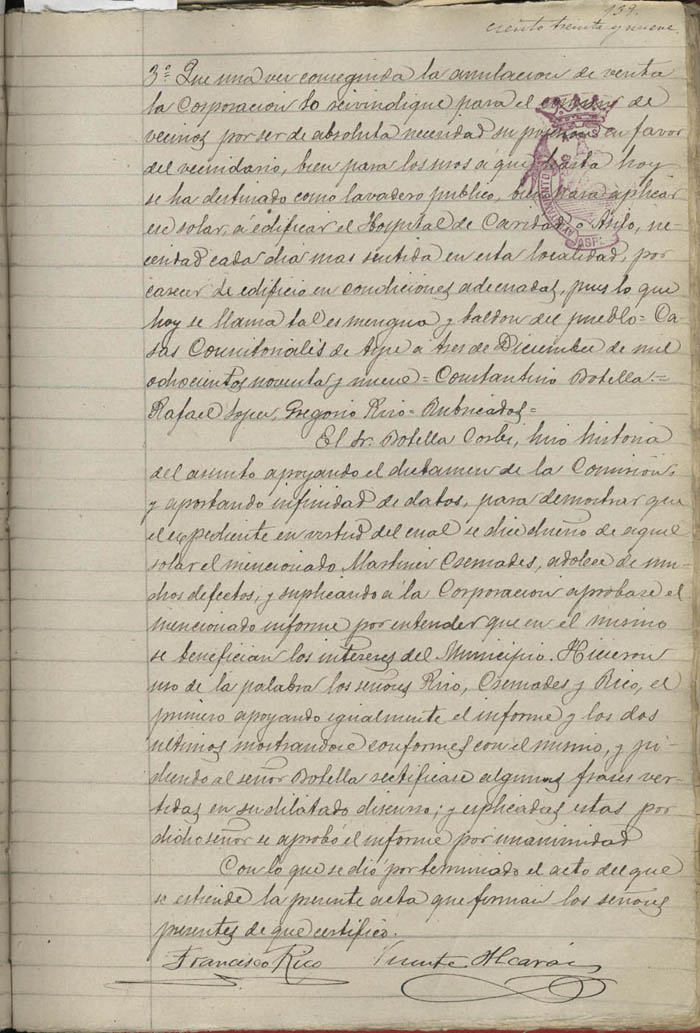 139.
ciento treinta y nueve.
3º Que una vez conseguida la anulacion de venta
la Corporacion lo reivindique para el comun de
vecinos por ser de absoluta necesidad su posesion en favor
del vecindario, bien para los usos a que hasta hoy
se ha destinado como lavadero publico, bien para aplicar
ese solar, á edificar el Hospital de Caridad o Asilo, ne-
cesidad cada dia mas sentida en esta localidad, por
carecer de edificio en condiciones adecuadas, pues lo que
hoy se llama tal es mengua y baldon del pueblo = Ca-
sas Consitoriales de Aspe á tres de Diciembre de mil
ochocientos noventa y nueve = Constantino Botella. =
Rafael Lopez, Gregorio Rizo = Rubricados =
El Sr. Botella Cosbi, hizo historia
del asunto apoyando el dictamen de la Comision,
y aportando infinidad de datos, para demostrar que
el expediente en virtud del cual se dice dueño de aquel
solar el mencionado Martinez Csemades, adolece de mu-
chos defectos; y suplicando a la Corporacion aprobase el
mencionado informe por entender que en el mismo
se benefician los intereses del Municipio. Hicieron
uso de la palabra los señores Rizo, Csemades y Rico, el
primero apoyando igualmente el informe y los dos
ultimos mostrandose conformes con el mismo, y pi-
diendo al señor Botella rectificase algunas frases ver-
tidas en su dilatado discurso; y esplicadas estas por
dicho señor se aprobó el informe por unanimidad
Con lo que se dió por terminado el acto del que
se estiende la presente acta que firman los señores
presentes de que certifico.
Francisco Rico Vicente Alcaráz
AYUNTAMIENTO ASPE